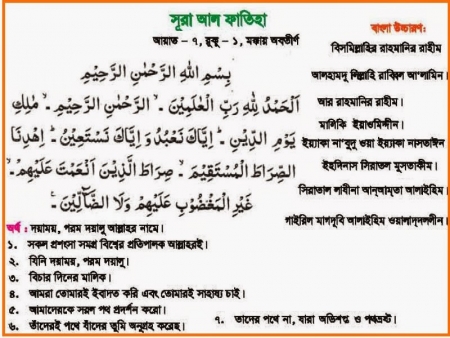 সূরা আল ফাতিহা
আয়াত - ৭, রুকু - ১, মক্কায় অবতীর্ণ
بِسْمِ اللهِ الرَّحْمٰنِ الرَّحِيْمِ
اَلْحَمْدُ لِلّٰهِ رَبِّ الْعٰلَمِيْنَ ۙ الرَّحْمٰنِ الرَّحِيْمِ ۙ مٰلِكِ
يَوْمِ الدِّيْنِ ؕ اِيَّاكَ نَعْبُدُ وَ اِيَّاكَ نَسْتَعِيْنُ ؕ اِهْدِنَا
الصِّرَاطَ الْمُسْتَقِيْمَ ۙ صِرَاطَ الَّذِيْنَ اَنْعَمْتَ عَلَيْهِمْ ۙ
غَيْرِ الْمَغْضُوْبِ عَلَيْهِمْ وَلَا الضَّآلِّيْنَ
বাংলা উচ্চারণ:
বিসমিল্লাহির রাহমানির রাহীম
আলহামদু লিল্লাহি রাব্বিল আ'লামিন।
আর রাহমানির রাহীম।
মালিকি ইয়াওমিদ্দীন।
ইয়্যাকা না'বুদু ওয়া ইয়্যাকা নাসতাঈন
ইহদিনাস সিরাতল মুসতাকীম।
সিরাতাল লাযীনা আন্‌আমৃতা আলাইহিম।
গাইরিল মাগদূবি আলাইহিম ওয়ালাদ্দললীন।
অর্থ : দয়াময়, পরম দয়ালু আল্লাহর নামে।
১. সকল প্রশংসা সমগ্র বিশ্বের প্রতিপালক আল্লাহরই।
২. যিনি দয়াময়, পরম দয়ালু।
৩. বিচার দিনের মালিক।
৪. আমরা তোমারই ইবাদত করি এবং তোমারই সাহায্য চাই।
৫. আমাদেরকে সরল পথ প্রদর্শন করো।
৬. তাঁদেরই পথে যাঁদের তুমি অনুগ্রহ করেছ।
৭. তাদের পথে না, যারা অভিশপ্ত ও পথভ্রষ্ট।